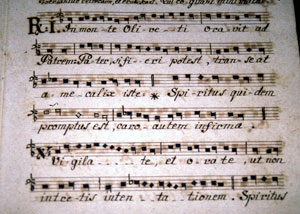 R. I. In mon-te Oli-ve-ti ora-vit ad
Patrem: Pa-ter, si fi-eri potest, tran-se-at
a me ca-lix iste. * Spi-ritus qui-dem
promptus est, caro autem infirma.
V. Vi-gila-te, et ora-te, ut non
intretis in ten-ta-tionem. Spiritus